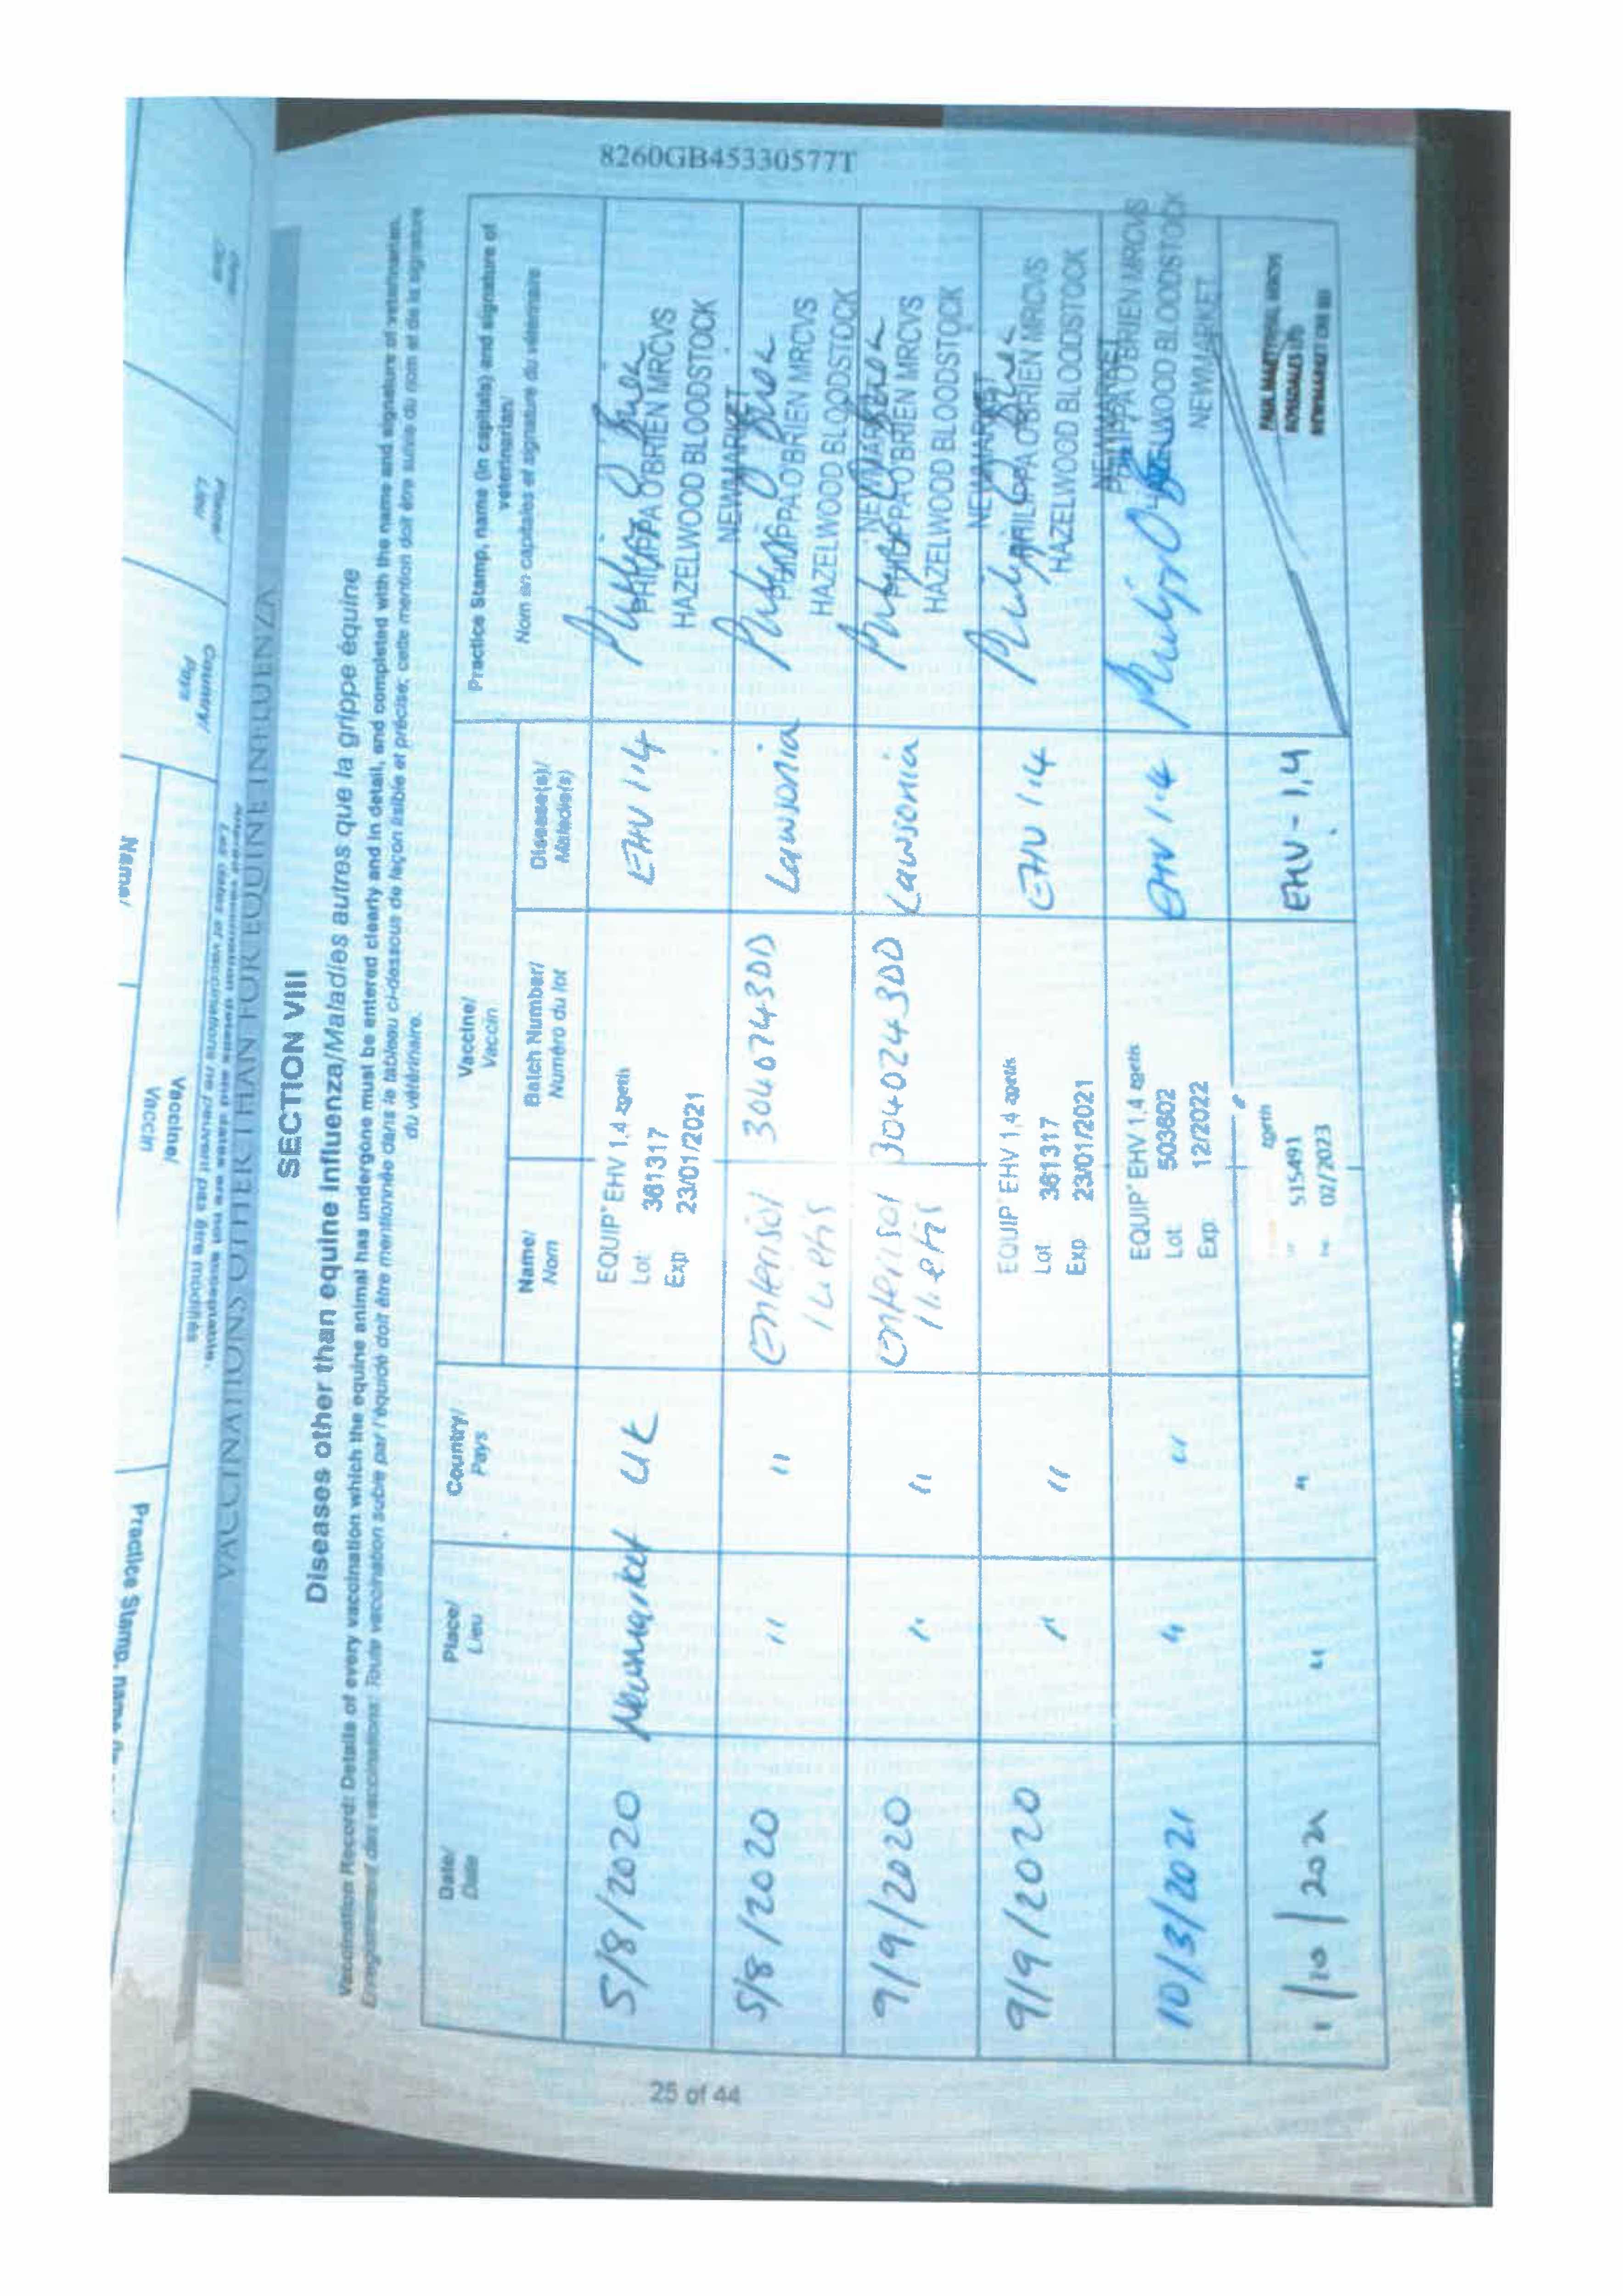 8260GB45330577T
VACCINATIONS OTHER THAN FOR EQUINE INFLUENZA
SECTION VIII
Diseases other than equine influenza/Maladies autres que la grippe équine
Vaccination Record: Details of every vaccination which the equine animal has undergone must be entered clearly and in detail, and completed with the name and signature of veterinarian.
Enregistrement des vaccinations: Toute vaccination subie par l'équidé doit être mentionnée dans le tableau ci-dessous de façon lisible et précise; cette mention doit être suivie du nom et de la signature
du vétérinaire.
Date/
Date
Place/
Lieu
Country/
Pays
Vaccine/
Vaccin
Name/
Nom
Batch Number/
Numéro du lot
Disease(s)/
Maladie(s)
Practice Stamp, name (in capitals) and signature of
veterinarian/
Nom en capitales et signature du vétérinaire
5/8/2020 Newmarket UK
EQUIP EHV 1,4 zoetis
Lot 361317
Exp 23/01/2021
EHV 1.4
PHILIPPA O'BRIEN MRCVS
HAZELWOOD BLOODSTOCK
NEWMARKET
5/8/2020 " "
Enterisol
Ileitis
Lawsonia
PHILIPPA O'BRIEN MRCVS
HAZELWOOD BLOODSTOCK
NEWMARKET
9/9/2020 " "
Enterisol
Ileitis
3040243DD
Lawsonia
PHILIPPA O'BRIEN MRCVS
HAZELWOOD BLOODSTOCK
NEWMARKET
9/9/2020 " "
EQUIP EHV 1,4 zoetis
Lot 361317
Exp 23/01/2021
EHV 1.4
PHILIPPA O'BRIEN MRCVS
HAZELWOOD BLOODSTOCK
NEWMARKET
10/3/2021 " "
EQUIP EHV 1,4 zoetis
Lot 503602
Exp 12/2022
EHV 1.4
PHILIPPA O'BRIEN MRCVS
HAZELWOOD BLOODSTOCK
NEWMARKET
1/10/2021 " "
zoetis
515491
02/2023
EHV-1,4
NEWMARKET
25 of 44
Name/
Vaccine/
Vaccin
Country/
Pays
Place/
Lieu
Practice Stamp, name